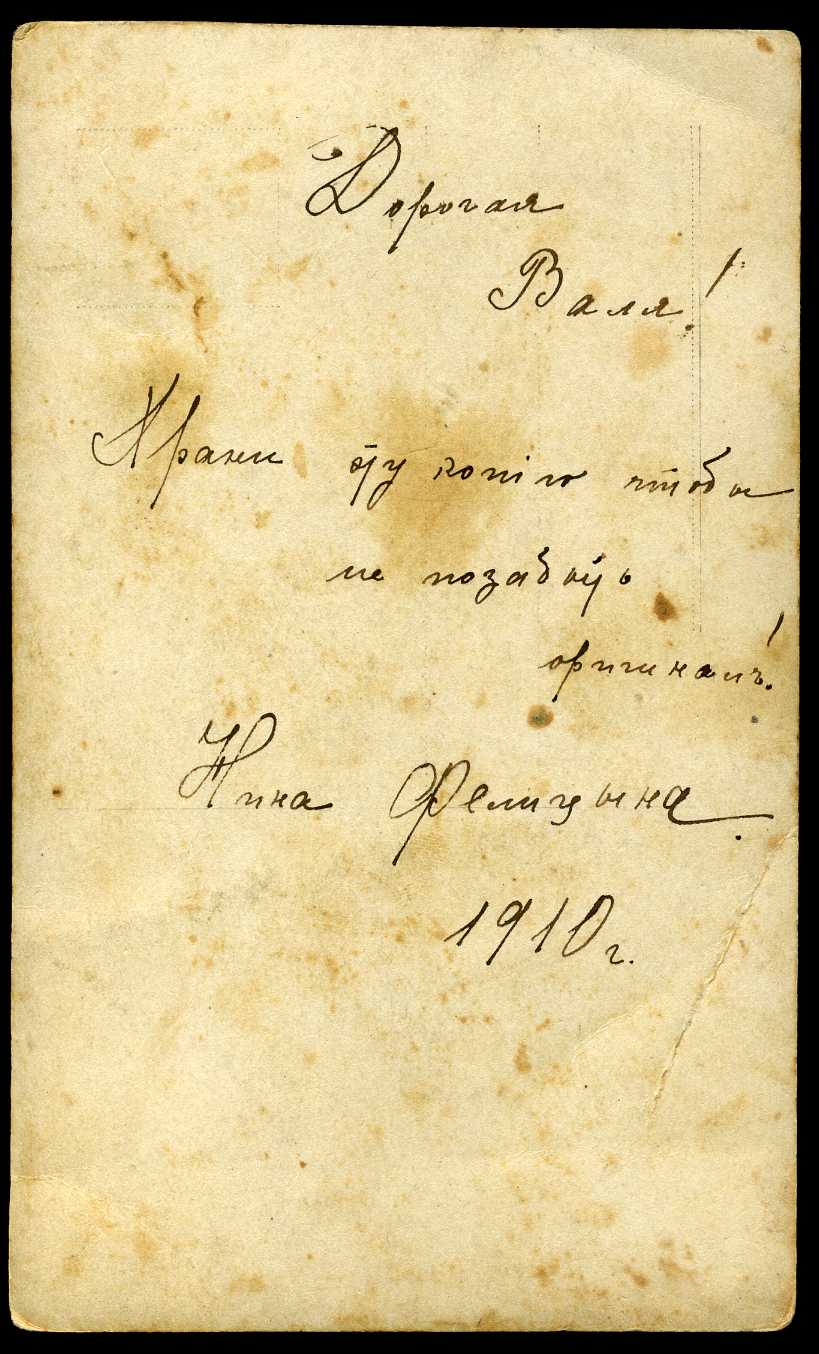 Дорогая
Валя!
Храни эту копію чтобы
не позабыть
оригиналъ!
Нина Фелицына.
1910 г.